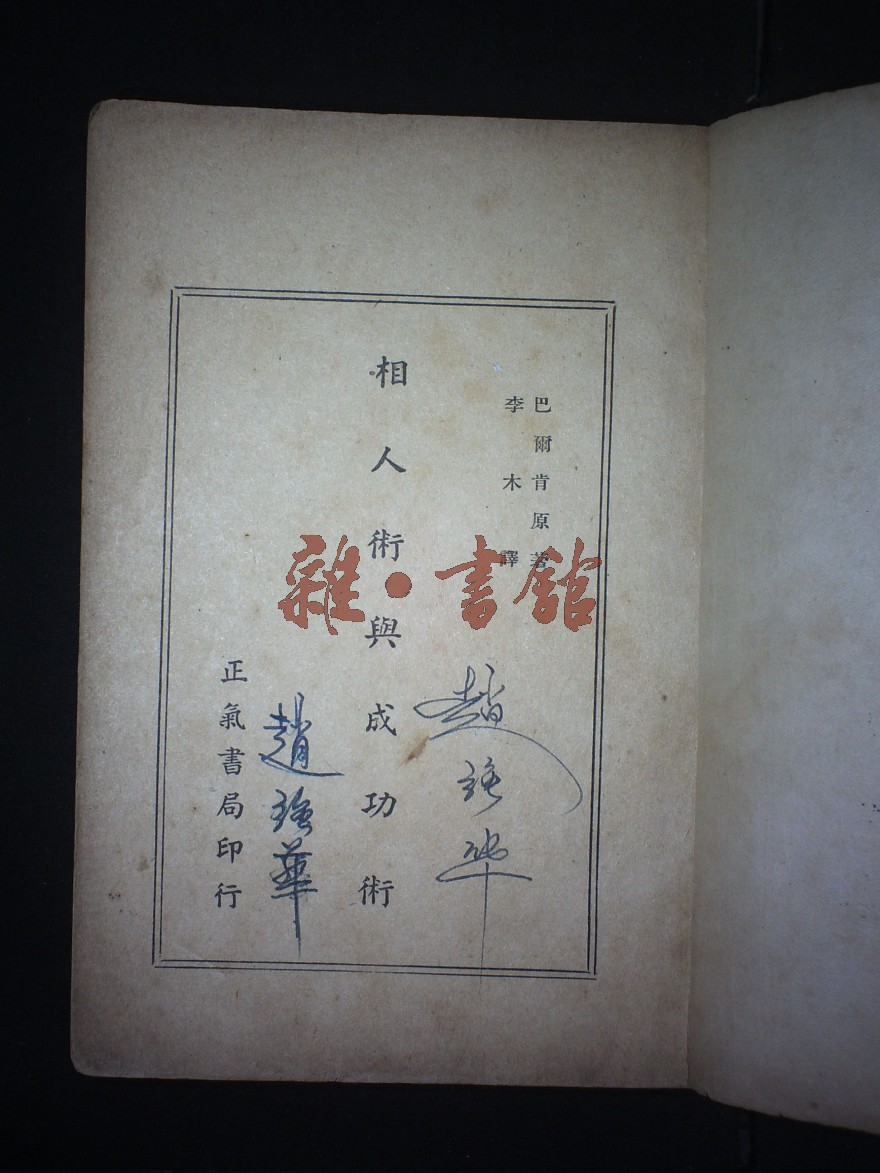 巴爾肯原著
李木譯
相人術與成功術
正氣書局印行
趙
华
趙
華
雜·書館